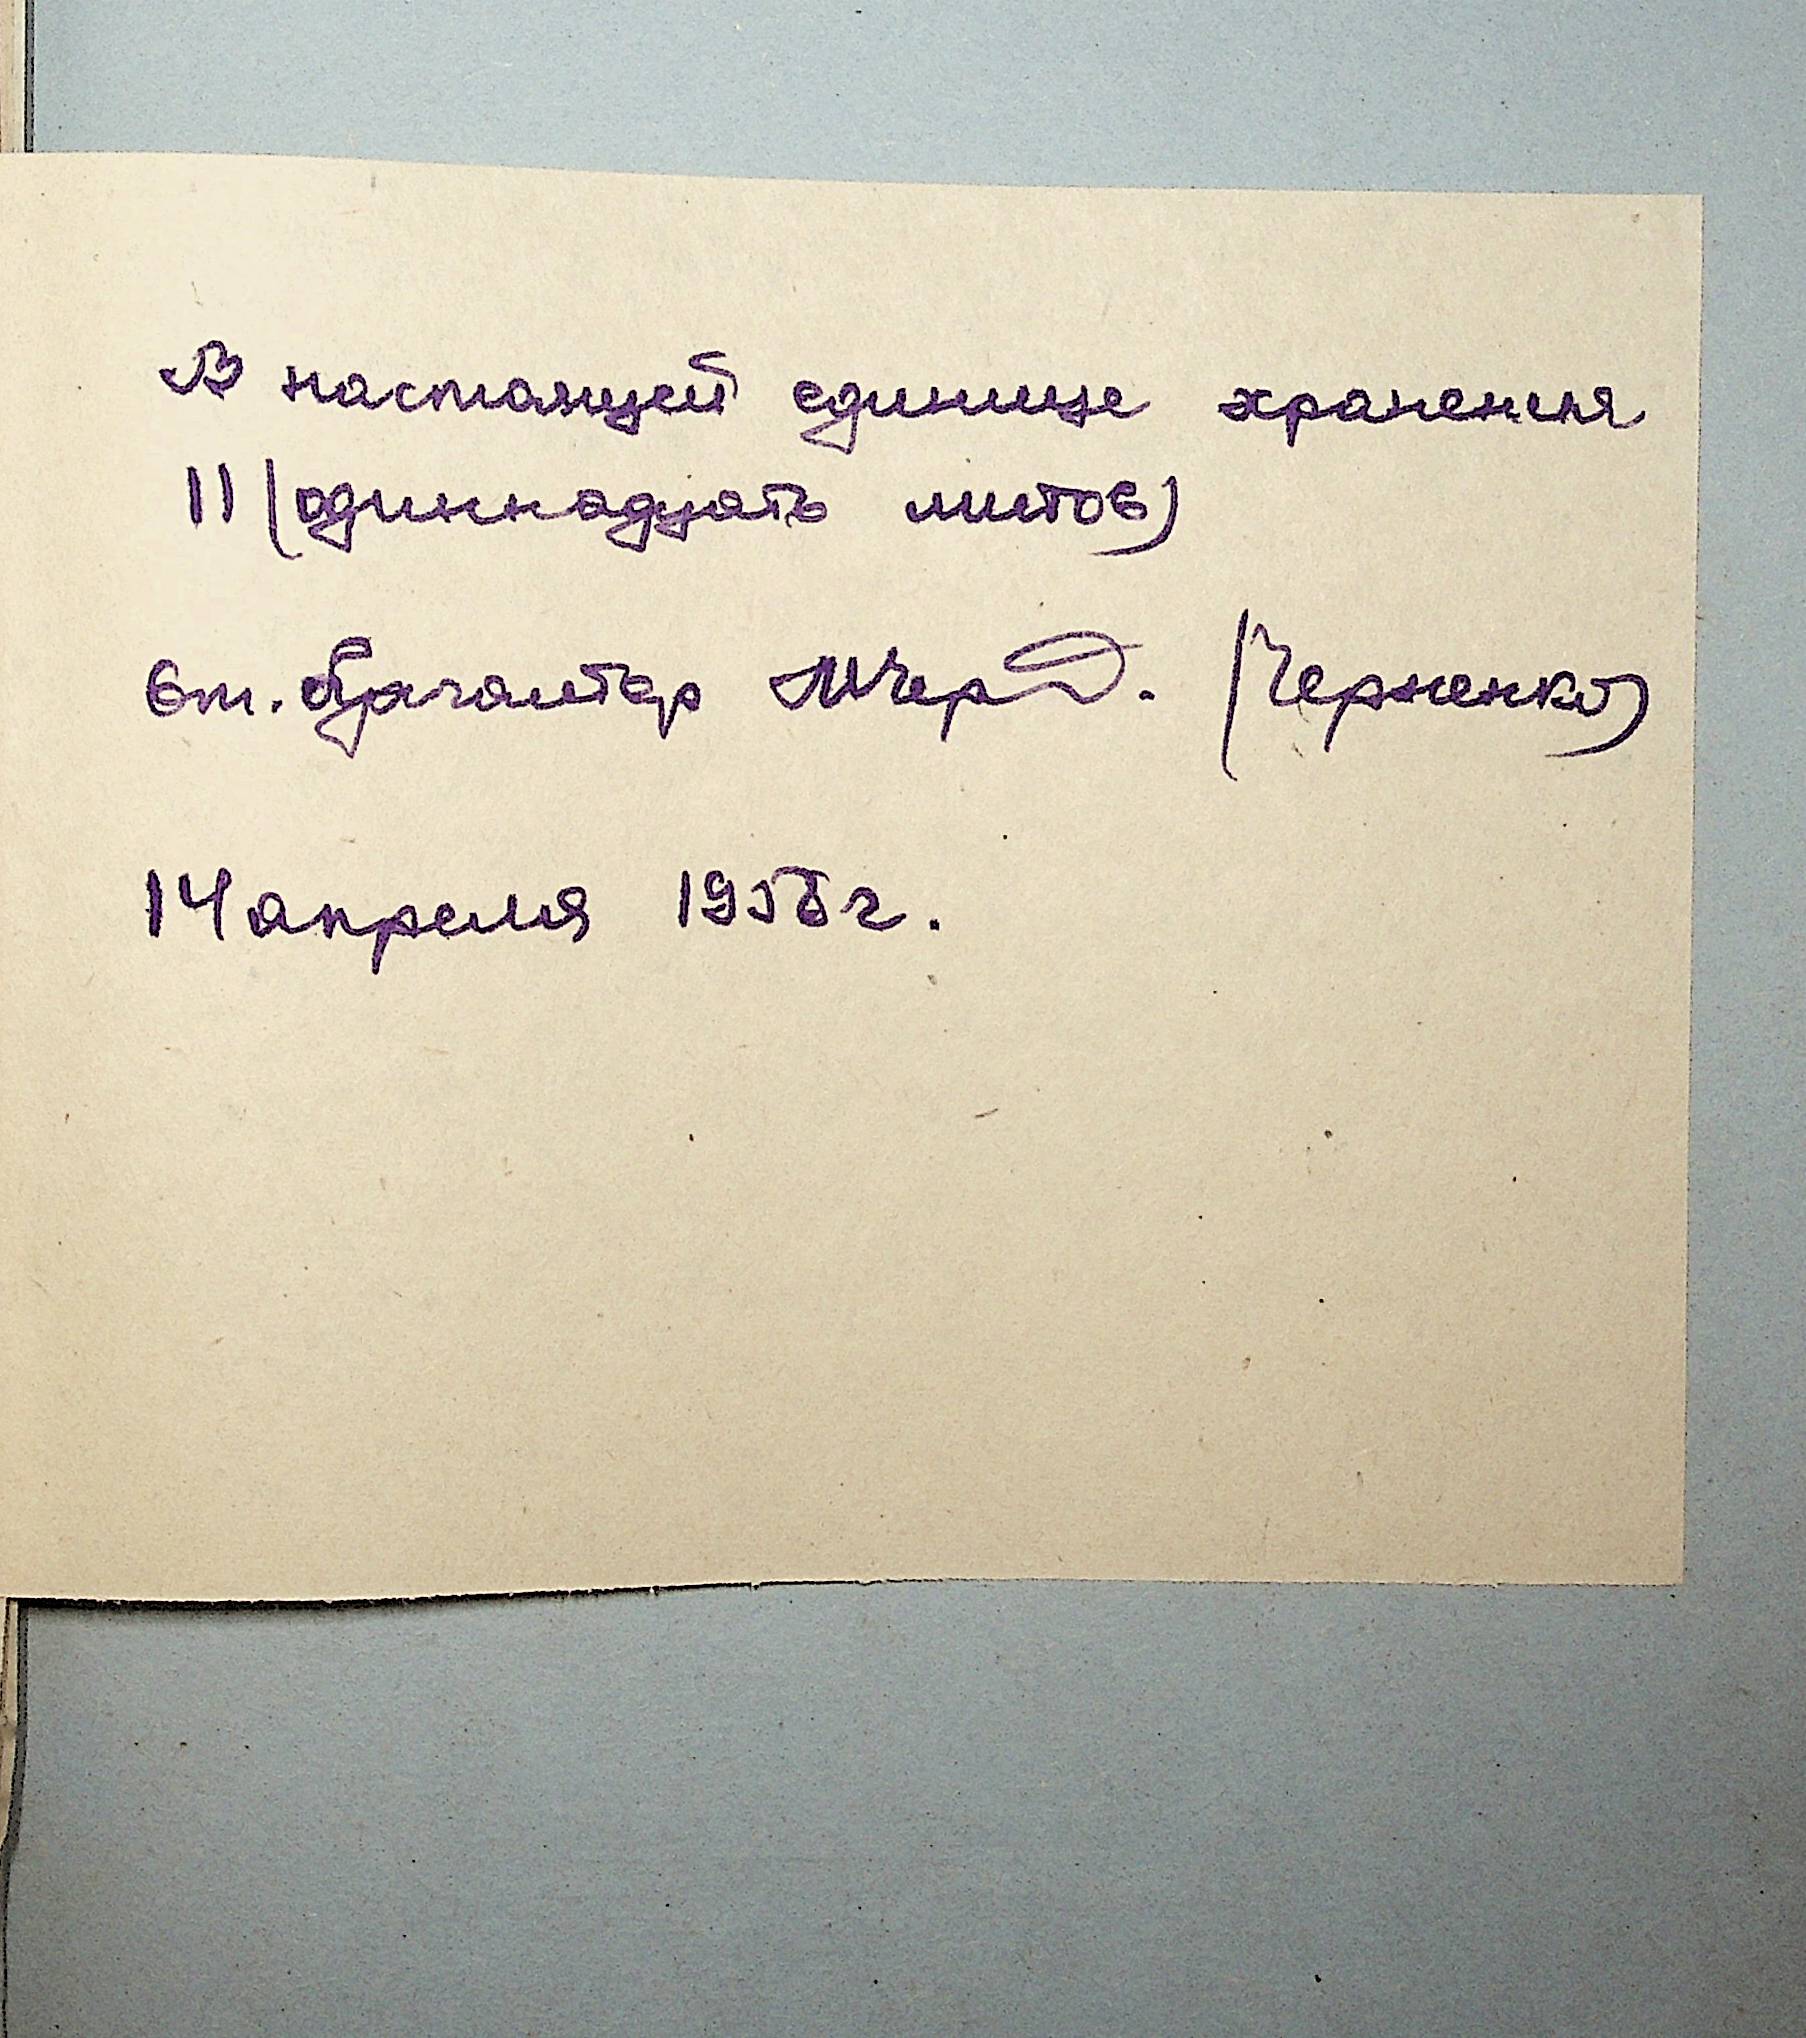 В настоящей единице хранения
11 (одиннадцать листов)
ст. бухгалтер МЧер (Черненко)
14 апреля 1956 г.